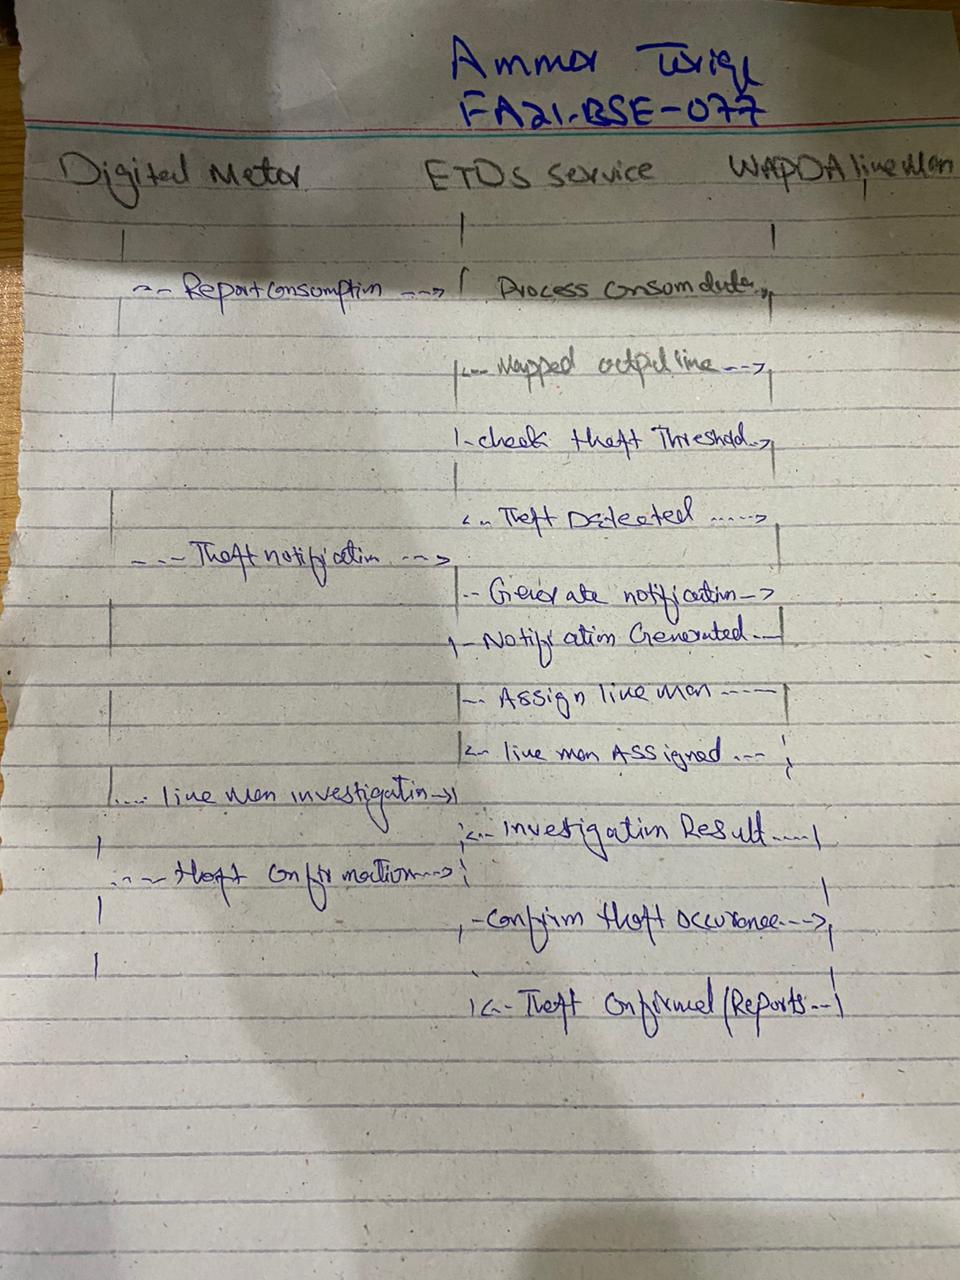 Ammar Tariq
FA21-BSE-077
Digital Meter ETDs service WAPDA line Man
Report Consumption Process Consum data
Mapped output line
check theft Threshold
Theft Detected
Theft notification
Generate notification
Notification Generated
Assign line man
line man ASSigned
line man investigation
investigation Result
theft Confirmation
Confirm theft occurance
Theft Confirmed/Reports